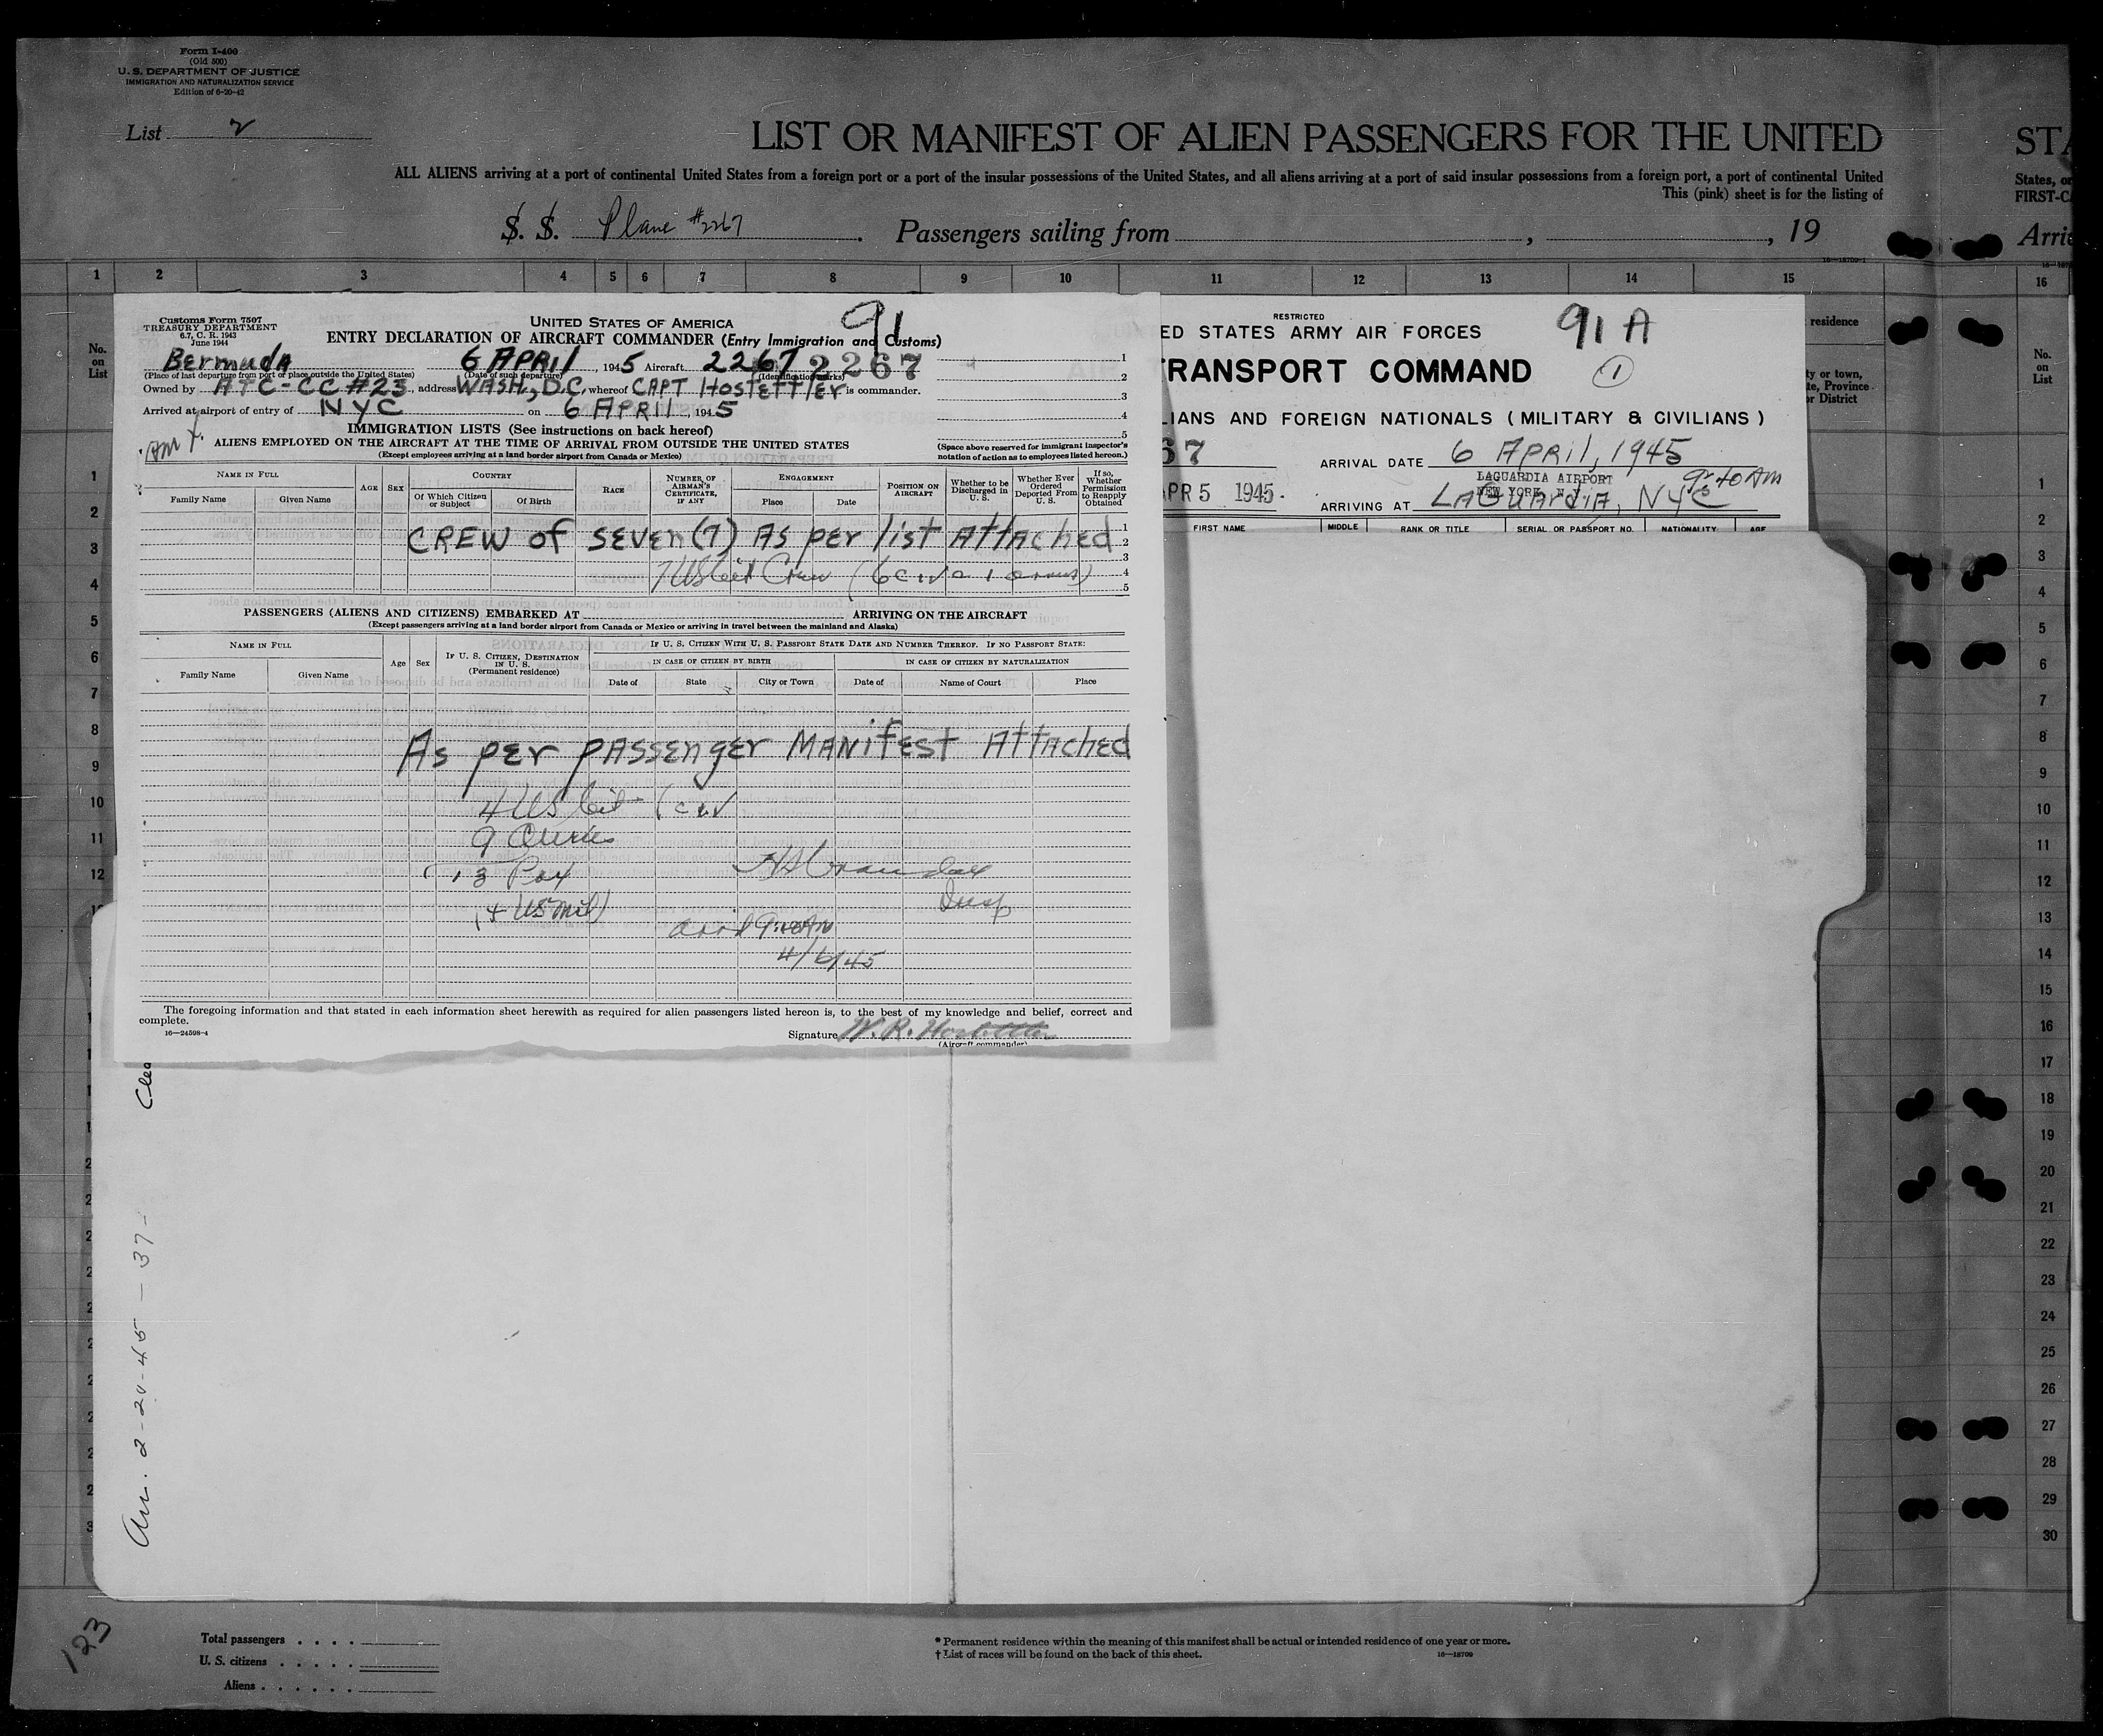 Form I-400
(Old 500)
U. S. DEPARTMENT OF JUSTICE
IMMIGRATION AND NATURALIZATION SERVICE
Edition of 6-20-42
List 2
LIST OR MANIFEST OF ALIEN PASSENGERS FOR THE UNITED
STA
ALL ALIENS arriving at a port of continental United States from a foreign port or a port of the insular possessions of the United States, and all aliens arriving at a port of said insular possessions from a foreign port, a port of continental United
States, or
This (pink) sheet is for the listing of
FIRST-C
S. S. Plane #2267. Passengers sailing from , , 19
Arri
1 2 3 4 5 6 7 8 9 10 11 12 13 14 15 16
Customs Form 7507
TREASURY DEPARTMENT
6.7, C. R. 1943
June 1944
UNITED STATES OF AMERICA
91
ENTRY DECLARATION OF AIRCRAFT COMMANDER (Entry Immigration and Customs)
Bermuda 6 APRIL, 1945 Aircraft 2267 2267
(Place of last departure from port or place outside the United States) (Date of such departure) (Identification marks)
Owned by ATC-CC #23, address WASH, D.C., whereof CAPT HOSTETTLER is commander.
Arrived at airport of entry of NYC on 6 APRIL, 1945
IMMIGRATION LISTS (See instructions on back hereof)
ALIENS EMPLOYED ON THE AIRCRAFT AT THE TIME OF ARRIVAL FROM OUTSIDE THE UNITED STATES
(Except employees arriving at a land border airport from Canada or Mexico)
1
2
3
4
5
(Space above reserved for immigrant inspector's
notation of action as to employees listed hereon.)
NAME IN FULL
Family Name Given Name
AGE SEX
COUNTRY
Of Which Citizen or Subject
Of Birth
RACE
NUMBER OF AIRMAN'S CERTIFICATE, IF ANY
ENGAGEMENT
Place Date
POSITION ON AIRCRAFT
Whether to be Discharged in U. S.
Whether Ever Ordered Deported From U. S.
If so, Whether Permission to Reapply Obtained
CREW of SEVEN (7) AS per list AttAched
7 US Cit Crew (6 civ 1 )
1
2
3
4
5
PASSENGERS (ALIENS AND CITIZENS) EMBARKED AT ARRIVING ON THE AIRCRAFT
(Except passengers arriving at a land border airport from Canada or Mexico or arriving in travel between the mainland and Alaska)
NAME IN FULL
Family Name Given Name
Age Sex
IF U. S. CITIZEN, DESTINATION IN U. S.
(Permanent residence)
IF U. S. CITIZEN WITH U. S. PASSPORT STATE DATE AND NUMBER THEREOF. IF NO PASSPORT STATE:
IN CASE OF CITIZEN BY BIRTH IN CASE OF CITIZEN BY NATURALIZATION
Date of State City or Town Date of Name of Court Place
As per pASSenger MANifest AttAched
4 US Cit (civ
9 Aliens
13 Pax
(4 US Mil)
Insp
4/6/45
The foregoing information and that stated in each information sheet herewith as required for alien passengers listed hereon is, to the best of my knowledge and belief, correct and
complete.
16—24598-4
Signature W. R. Hostettler
(Aircraft commander)
RESTRICTED
ED STATES ARMY AIR FORCES
91 A
RANSPORT COMMAND
1
LIANS AND FOREIGN NATIONALS (MILITARY & CIVILIANS)
67
ARRIVAL DATE 6 APRil, 1945
LAGUARDIA AIRPORT
NEW YORK N. Y.
APR 5 1945
ARRIVING AT LAGUArdiA, NYC
FIRST NAME MIDDLE RANK OR TITLE SERIAL OR PASSPORT NO. NATIONALITY AGE
residence
ty or town,
te, Province
or District
No. on List
1
2
3
4
5
6
7
8
9
10
11
12
No. on List
1
2
3
4
5
6
7
8
9
10
11
12
13
14
15
16
17
18
19
20
21
22
23
24
25
26
27
28
29
30
Clea
2-20-45 — 37-
123
Total passengers
U. S. citizens
Aliens
* Permanent residence within the meaning of this manifest shall be actual or intended residence of one year or more.
† List of races will be found on the back of this sheet.
16—18709